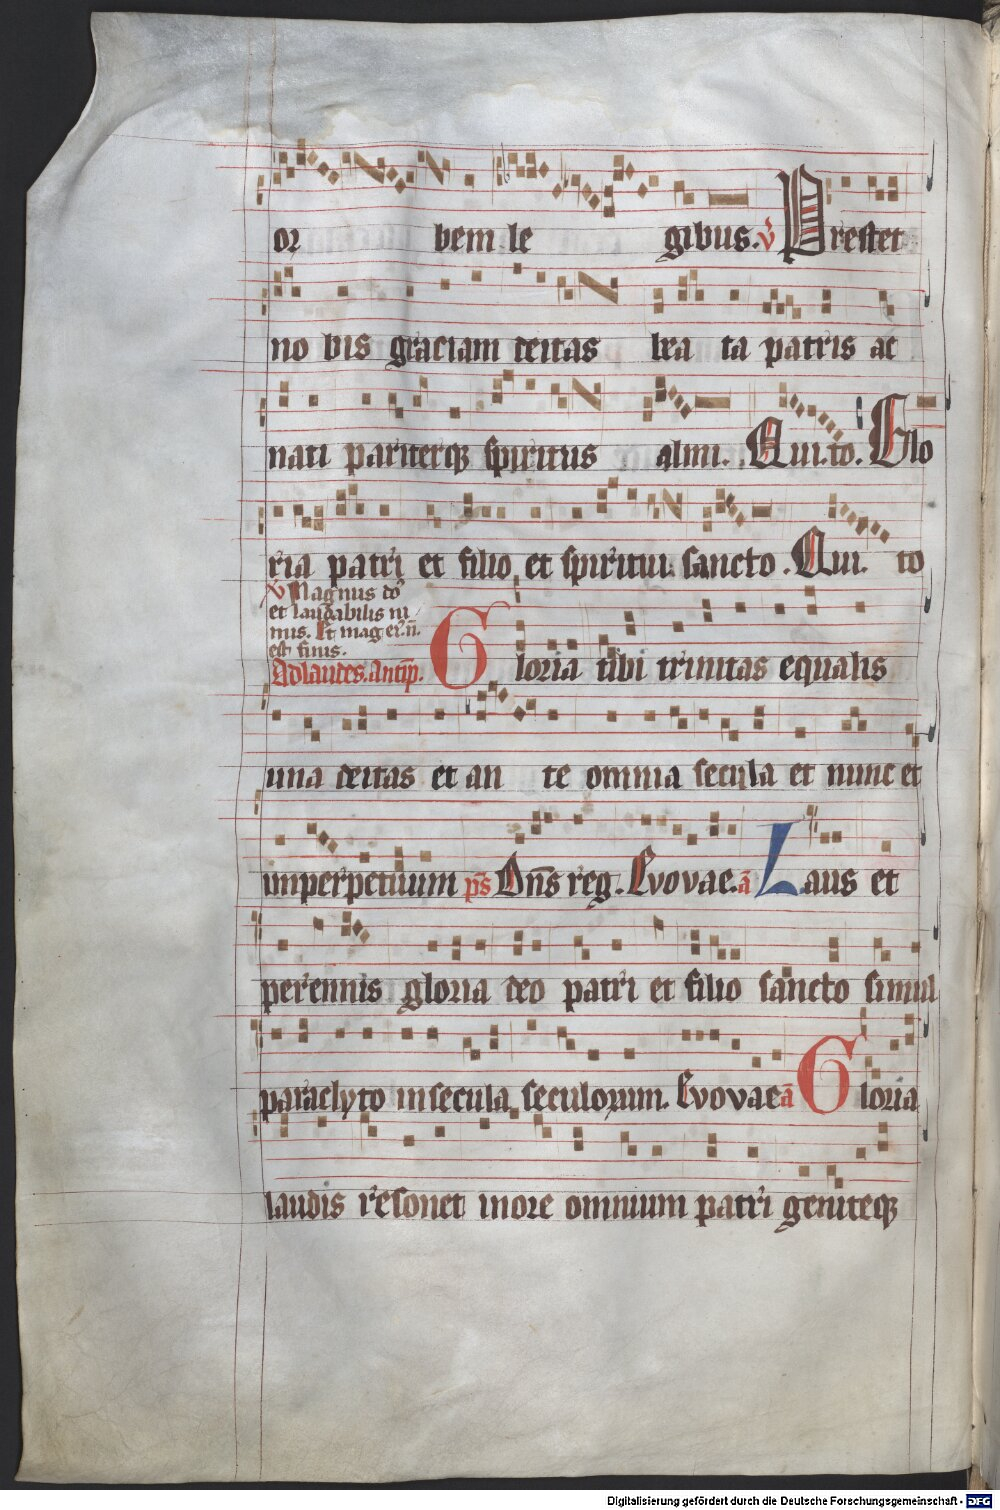 or bem le gibus. v̄ Prestet
no bis graciam deitas bea ta patris ac
nati pariterqꝫ spiritus almi. Qui. to. Glo
ria patri et filio et spiritui sancto. Qui. to
v̄ Magnus do᷒
et laudabilis ni
mis. Et mag ei᷒. n̄.
est finis.
Ad laudes. antip̄. Gloria tibi trinitas equalis
una deitas et an te omnia secula et nunc et
inperpetuum ps̄ Dn̄s reg. Evovae. ā Laus et
perennis gloria deo patri et filio sancto simul
paraclyto in secula seculorum. Evovae ā Gloria
laudis resonet in ore omnium patri geniteqꝫ
Digitalisierung gefördert durch die Deutsche Forschungsgemeinschaft - DFG